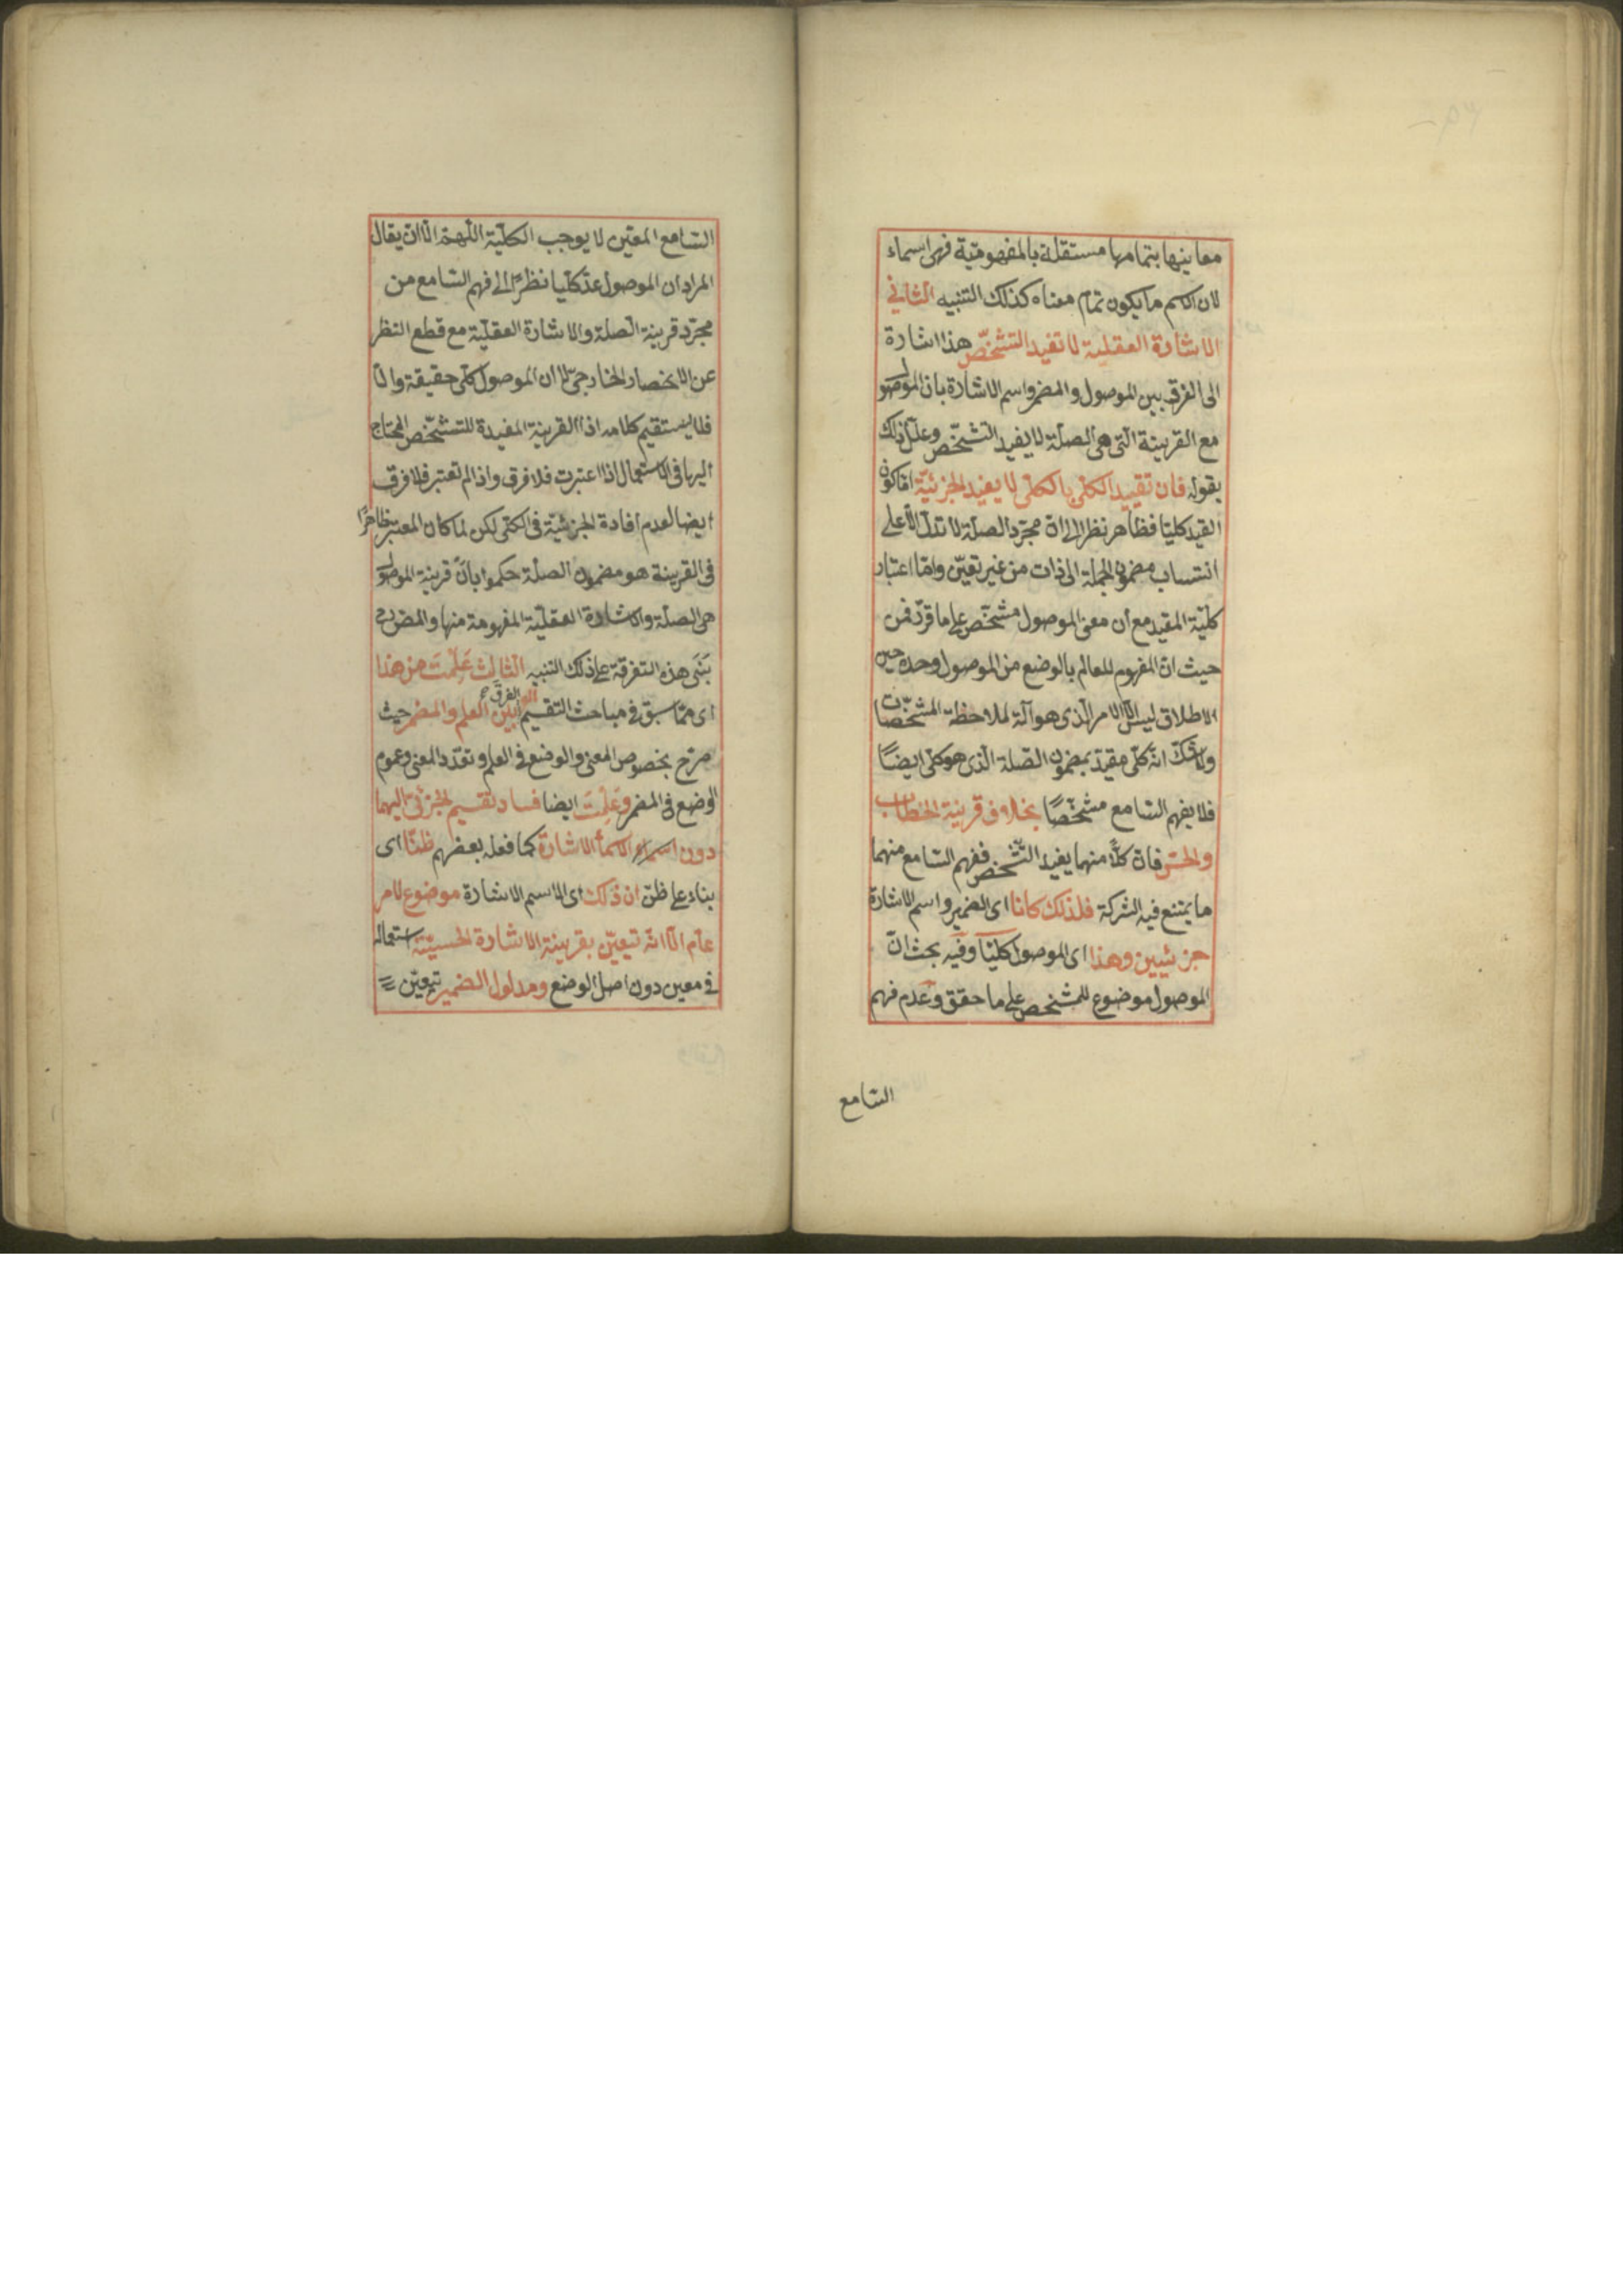 معانيها بتمامها مستقلة بالمفهومية فهي اسماء
لان الاسم ما يكون تمام معناه كذلك التنبيه الثاني
الاشارة العقلية لا تفيد التشخّص هذا اشارة
الى الفرق بين الموصول والمضمر واسم الاشارة بان الموصول
مع القرينة التى هى الصلة لا يفيد التشخّص وعلّل ذلك
بقوله فان تقييد الكلّى بالكلّى لا يفيد الجزئيّة امّا كون
القيد كليّا فظاهر نظرا الى انّ مجرّد الصلة لا تدلّ الّا على
انتساب مضمون الجملة الى ذات من غير تعيّن وامّا اعتبار
كليّة المقيد مع أن معنى الموصول مشخّص على ما قرّر فمن
حيث انّ المفهوم للعالم بالوضع من الموصول وحده حين
الاطلاق ليس الّا الامر الّذى هو آلة لملاحظة المشخّصات
ولا شكّ انّه كلّى مقيّد بمضمون الصّلة الّذى هو كلّى ايضًا
فلا يفهم السّامع مشخّصًا بخلاف قرينة الخطاب
والحسّ فانّ كلًّا منهما يفيد التّشخّص ففهم السّامع منهما
ما يمتنع فيه الشركة فلذلك كانا اى الضمير واسم الاشارة
جزئيين وهذا اى الموصول كليّا وفيه بحث انّ
الموصول موضوع للمشخص على ما حقق وعدم فهم
السّامع
السّامع المعيّن لا يوجب الكليّة اللّهمّ الّا ان يقال
المراد ان الموصول عدّ كليّا نظرًا الى فهم السّامع من
مجرّد قرينة الصلة والاشارة العقليّة مع قطع النظر
عن الانحصار الخارجىّ لا ان الموصول كلّى حقيقة والّا
فلا يستقيم كلامه اذ القرينة المفيدة للتشخّص المحتاج
اليها فى الاستعمال اذا اعتبرت فلا فرق واذا لم تعتبر فلا فرق
ايضا لعدم افادة الجزئيّة فى الكلّى لكن لما كان المعتبر ظاهرًا
فى القرينة هو مضمون الصلة حكموا بانّ قرينة الموصول
هى الصلة والاشارة العقليّة المفهومة منها والمض رح
بَنَى هذه التفرقة على ذلك التنبيه الثالث عَلِمْتَ من هذا
اى ممّا سبق فى مباحث التقسيم الفرق بين العلم والمضمر حيث
صرّح بخصوص المعنى والوضع فى العلم وتعدّد المعنى وعموم
الوضع فى المضمر وعَلِمْتَ ايضا فساد تقسيم الجزئىّ اليهما
دون اسماء الاشارة كما فعله بعضهم ظنّا اى
بناء على ظنّ ان ذلك اى الاسم الاشارة موضوع لامر
عامّ الّا انّه تعيّن بقرينة الاشارة الحسيّة استعماله
فى معين دون اصل الوضع ومدلول الضمير تعيّن